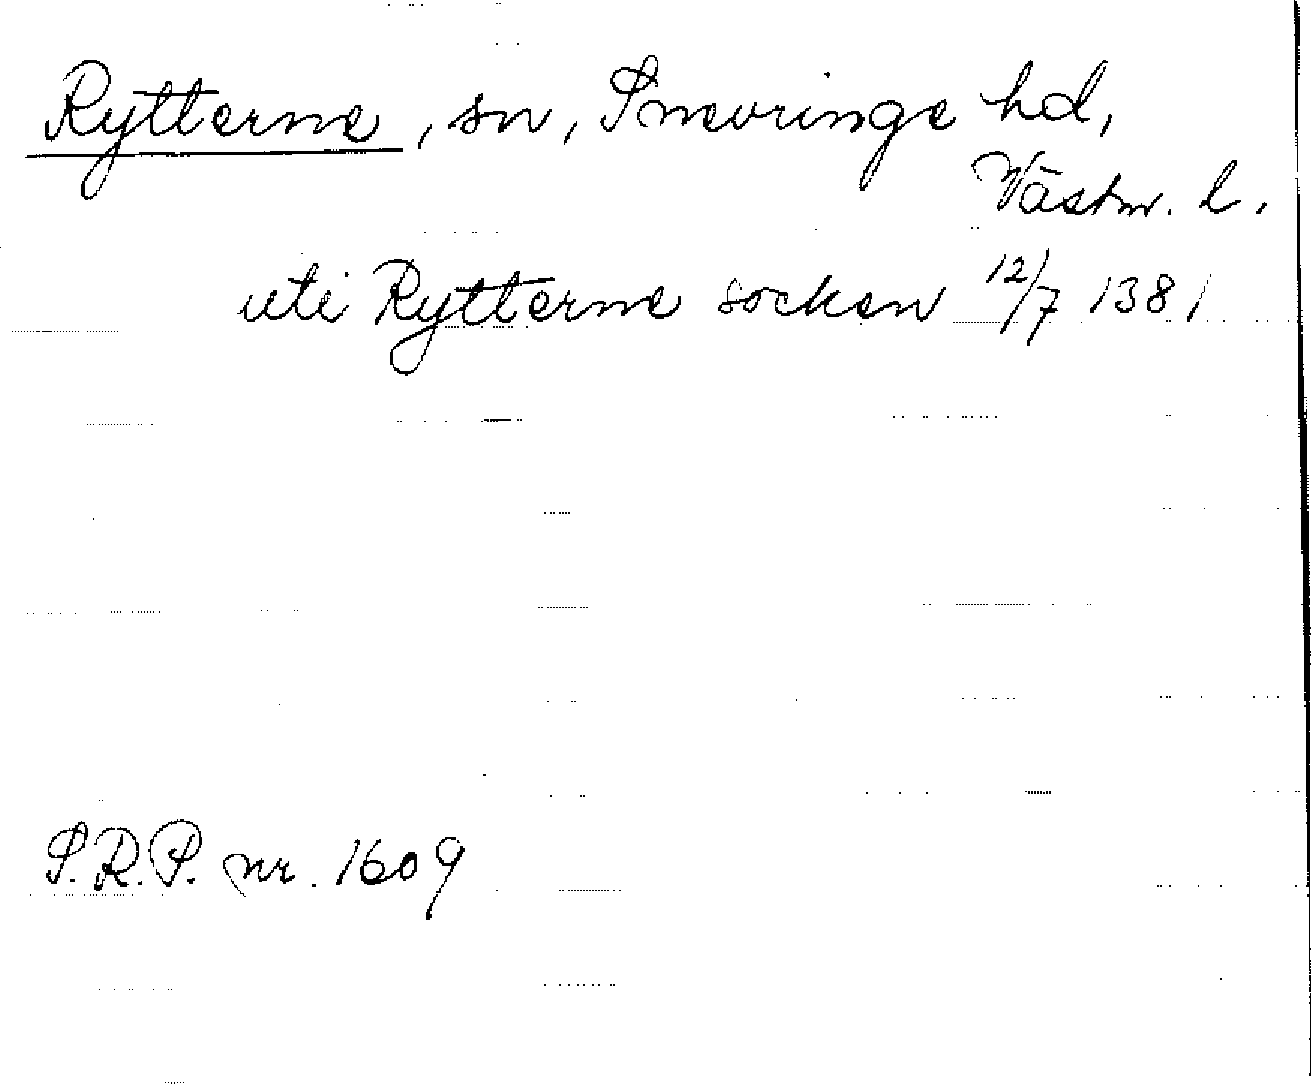 Rytterne, sn, Snevringe hd,
Västm. l.
uti Rytterne socken 12/7 1381
S.R.P. nr. 1609